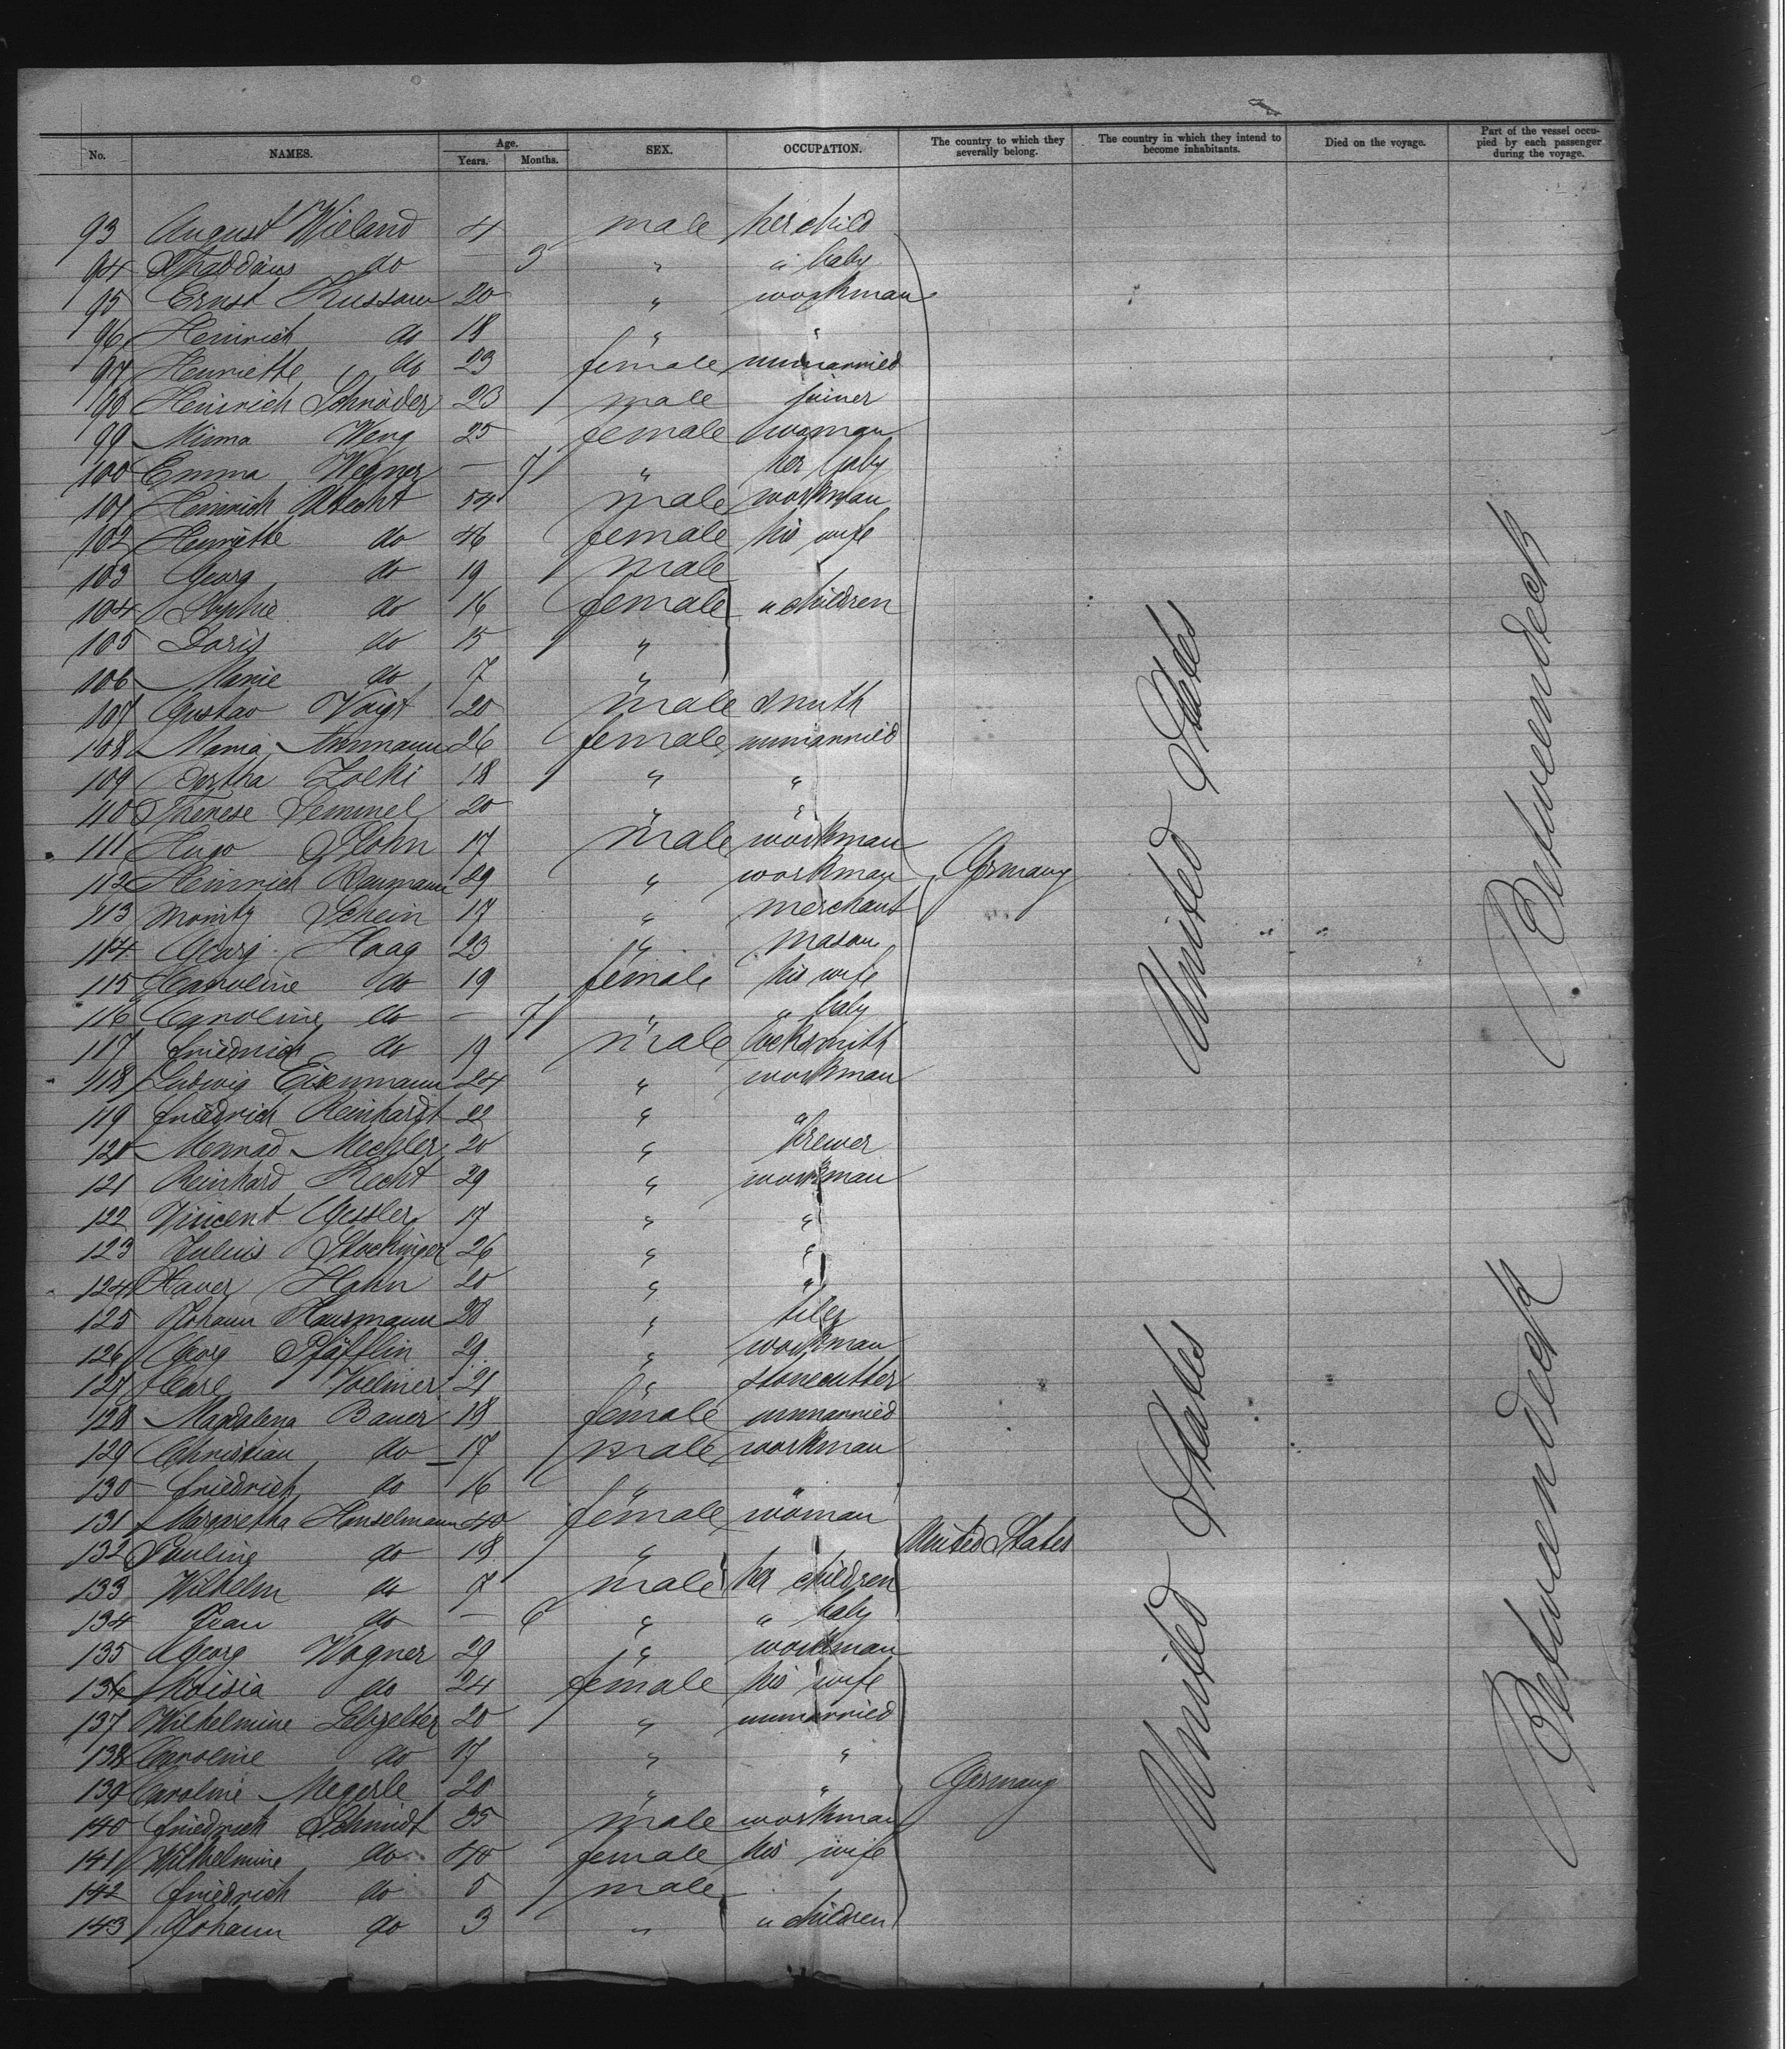 No. NAMES. Age. Years. Months. SEX. OCCUPATION. The country to which they severally belong. The country in which they intend to become inhabitants. Died on the voyage. Part of the vessel occupied by each passenger during the voyage.
93 August Wieland 4 male her child
94 Thaddäus do — 3 " " baby
95 Ernst Kussow 20 " workman
96 Heinrich do 18 " "
97 Henriette do 23 female unmarried
98 Heinrich Schröder 23 male joiner
99 Minna Weng 25 female woman
100 Emma Wegner — 7 " her baby
101 Heinrich 54 male workman
102 Henriette do 46 female his wife
103 Georg do 19 male
104 Sophie do 16 female " children
105 Doris do 15 "
106 Marie do 7 "
107 Gustav Voigt 20 male smith
108 Maria 26 female unmarried
109 Bertha Zolki 18 " "
110 Therese Semmel 20 " "
111 Hugo 17 male workman
112 Heinrich Baumann 29 " workman Germany
113 Moritz Schein 17 " merchant
114 Georg Haag 23 " mason
115 Caroline do 19 female his wife
116 Caroline do — 7 " " baby
117 Friedrich do 19 male locksmith
118 Ludwig Eisenmann 24 " workman
119 Friedrich Reinhardt 22 " "
120 Mechler 20 " brewer
121 Reinhard Recht 29 " workman
122 Vincent Gessler 17 " "
123 Julius Stockinger 26 " "
124 Xaver Hahn 20 " "
125 Johann Hausmann 28 " tiler
126 Georg Pfäfflin 29 " workman
127 Carl Vollmer 21 " stonecutter
128 Magdalena Bauer 18 female unmarried
129 Christian do 17 male workman
130 Friedrich do 16 " "
131 Margaretha Hanselmann 40 female woman
132 Pauline do 18 " United States
133 Wilhelm do 7 male her children
134 Jean do — 6 " " baby
135 Georg Wagner 29 " workman
136 Aloisia do 24 female his wife
137 Wilhelmine Lebzelter 20 " unmarried
138 Caroline do 17 " "
139 Caroline Megerle 20 " " Germany
140 Friedrich Schmidt 35 male workman
141 Wilhelmine do 40 female his wife
142 Friedrich do 5 male
143 Johann do 3 " " children
United States
United States
Betweendeck
Betweendeck